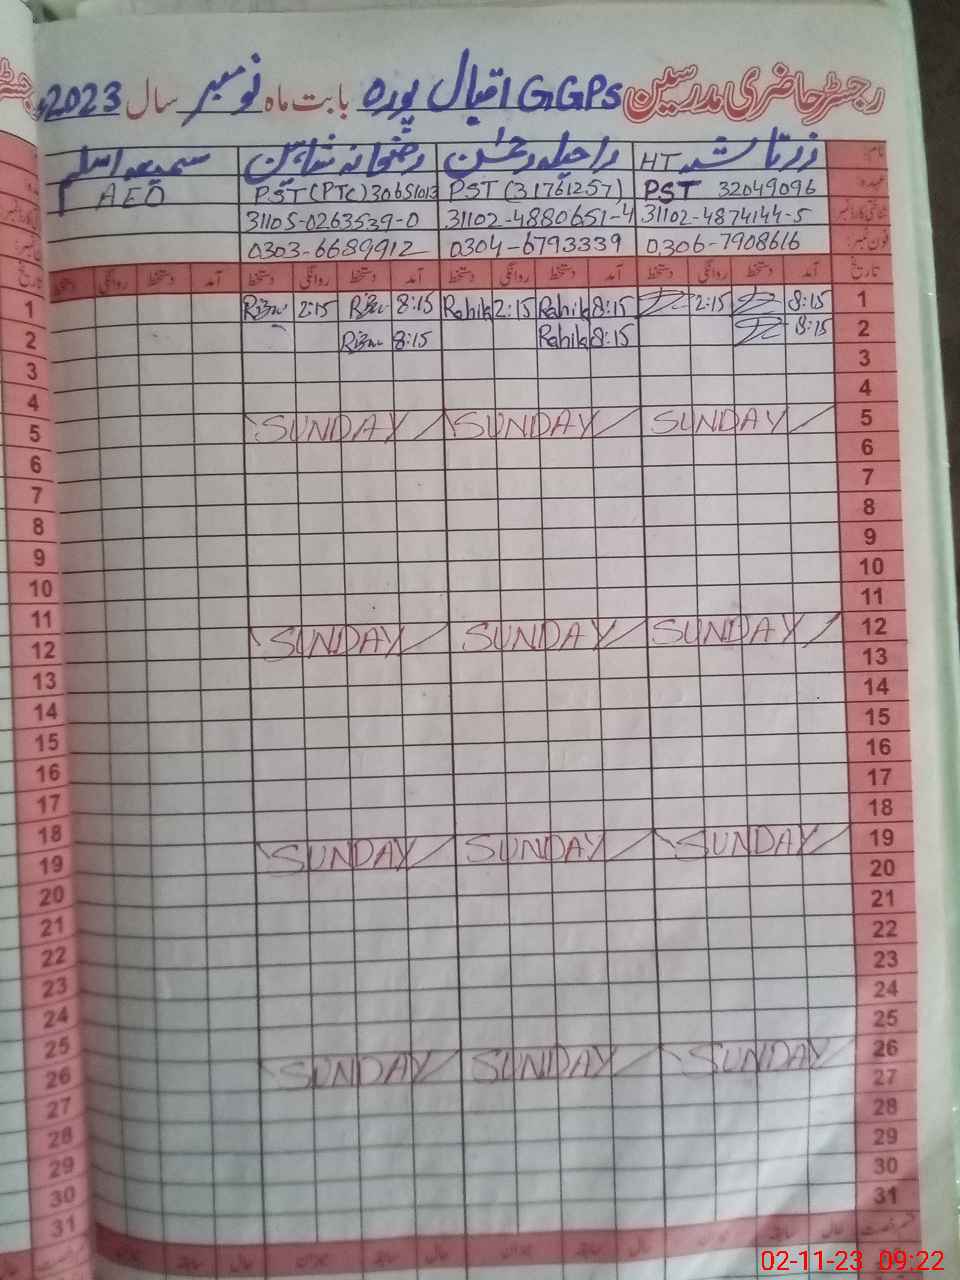 رجسٹر حاضری مدرسین GGPS اقبال پورہ بابت ماہ نومبر سال 2023ء
نام: زرتاشیہ HT راحیلہ رحمٰن رخسانہ شاہین سمیعہ اسلم
عہدہ: PST 32049096 PST (31761257) PST (PTC) 30651013 AEO
شناختی کارڈ نمبر: 31102-4874144-5 31102-4880651-4 31105-0263539-0
فون نمبر: 0306-7908616 0304-6793339 0303-6689912
تاریخ آمد دستخط روانگی دستخط آمد دستخط روانگی دستخط آمد دستخط روانگی دستخط آمد دستخط روانگی دستخط
1 8:15 2:15 8:15 Rahila 2:15 Rahila 8:15 2:15 1
2 8:15 8:15 Rahila 8:15 2
3 3
4 4
5 SUNDAY SUNDAY SUNDAY 5
6 6
7 7
8 8
9 9
10 10
11 11
12 SUNDAY SUNDAY SUNDAY 12
13 13
14 14
15 15
16 16
17 17
18 18
19 SUNDAY SUNDAY SUNDAY 19
20 20
21 21
22 22
23 23
24 24
25 25
26 SUNDAY SUNDAY SUNDAY 26
27 27
28 28
29 29
30 30
31 31
02-11-23 09:22